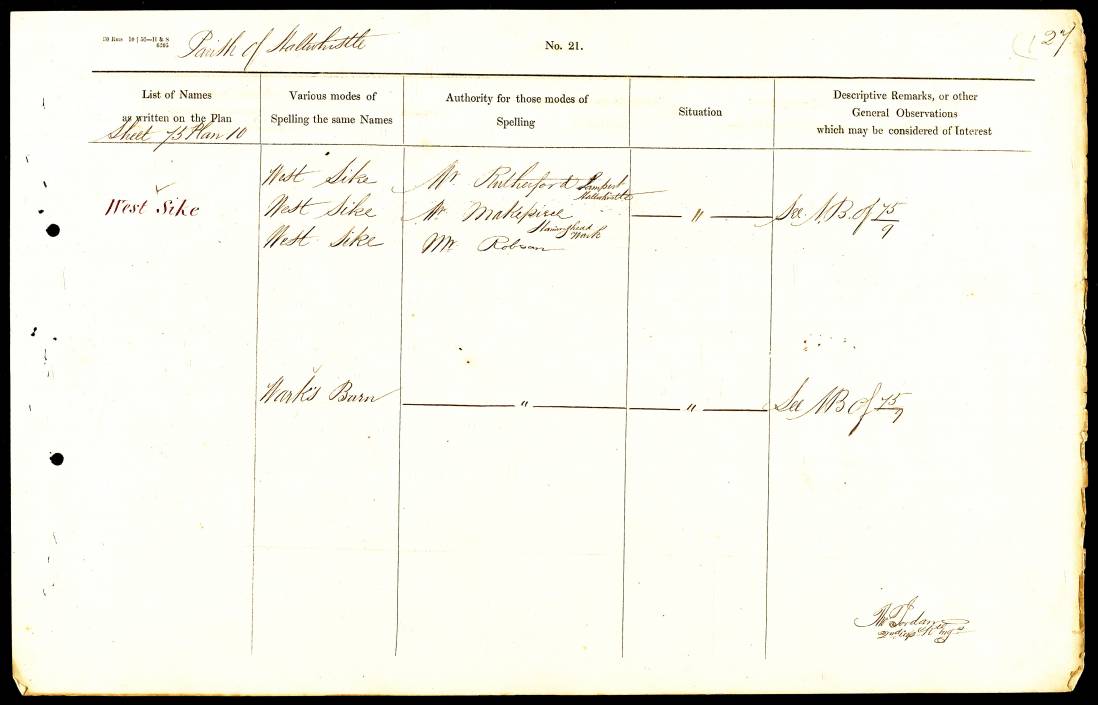 Parish of Haltwhistle
No. 21.
27
List of Names
as written on the Plan
Various modes of
Spelling the same Names
Authority for those modes of
Spelling
Situation
Descriptive Remarks, or other
General Observations
which may be considered of Interest
Sheet 75 Plan 10
West Sike
West Sike
West Sike
West Sike
Mr. Rutherford Lampert
Haltwhistle
Mr. Makepiece
Wark
Mr Robson
— " —
See N.B. of 75/9
Wark's Burn
— " —
— " —
See NB of 75/9
Jordan